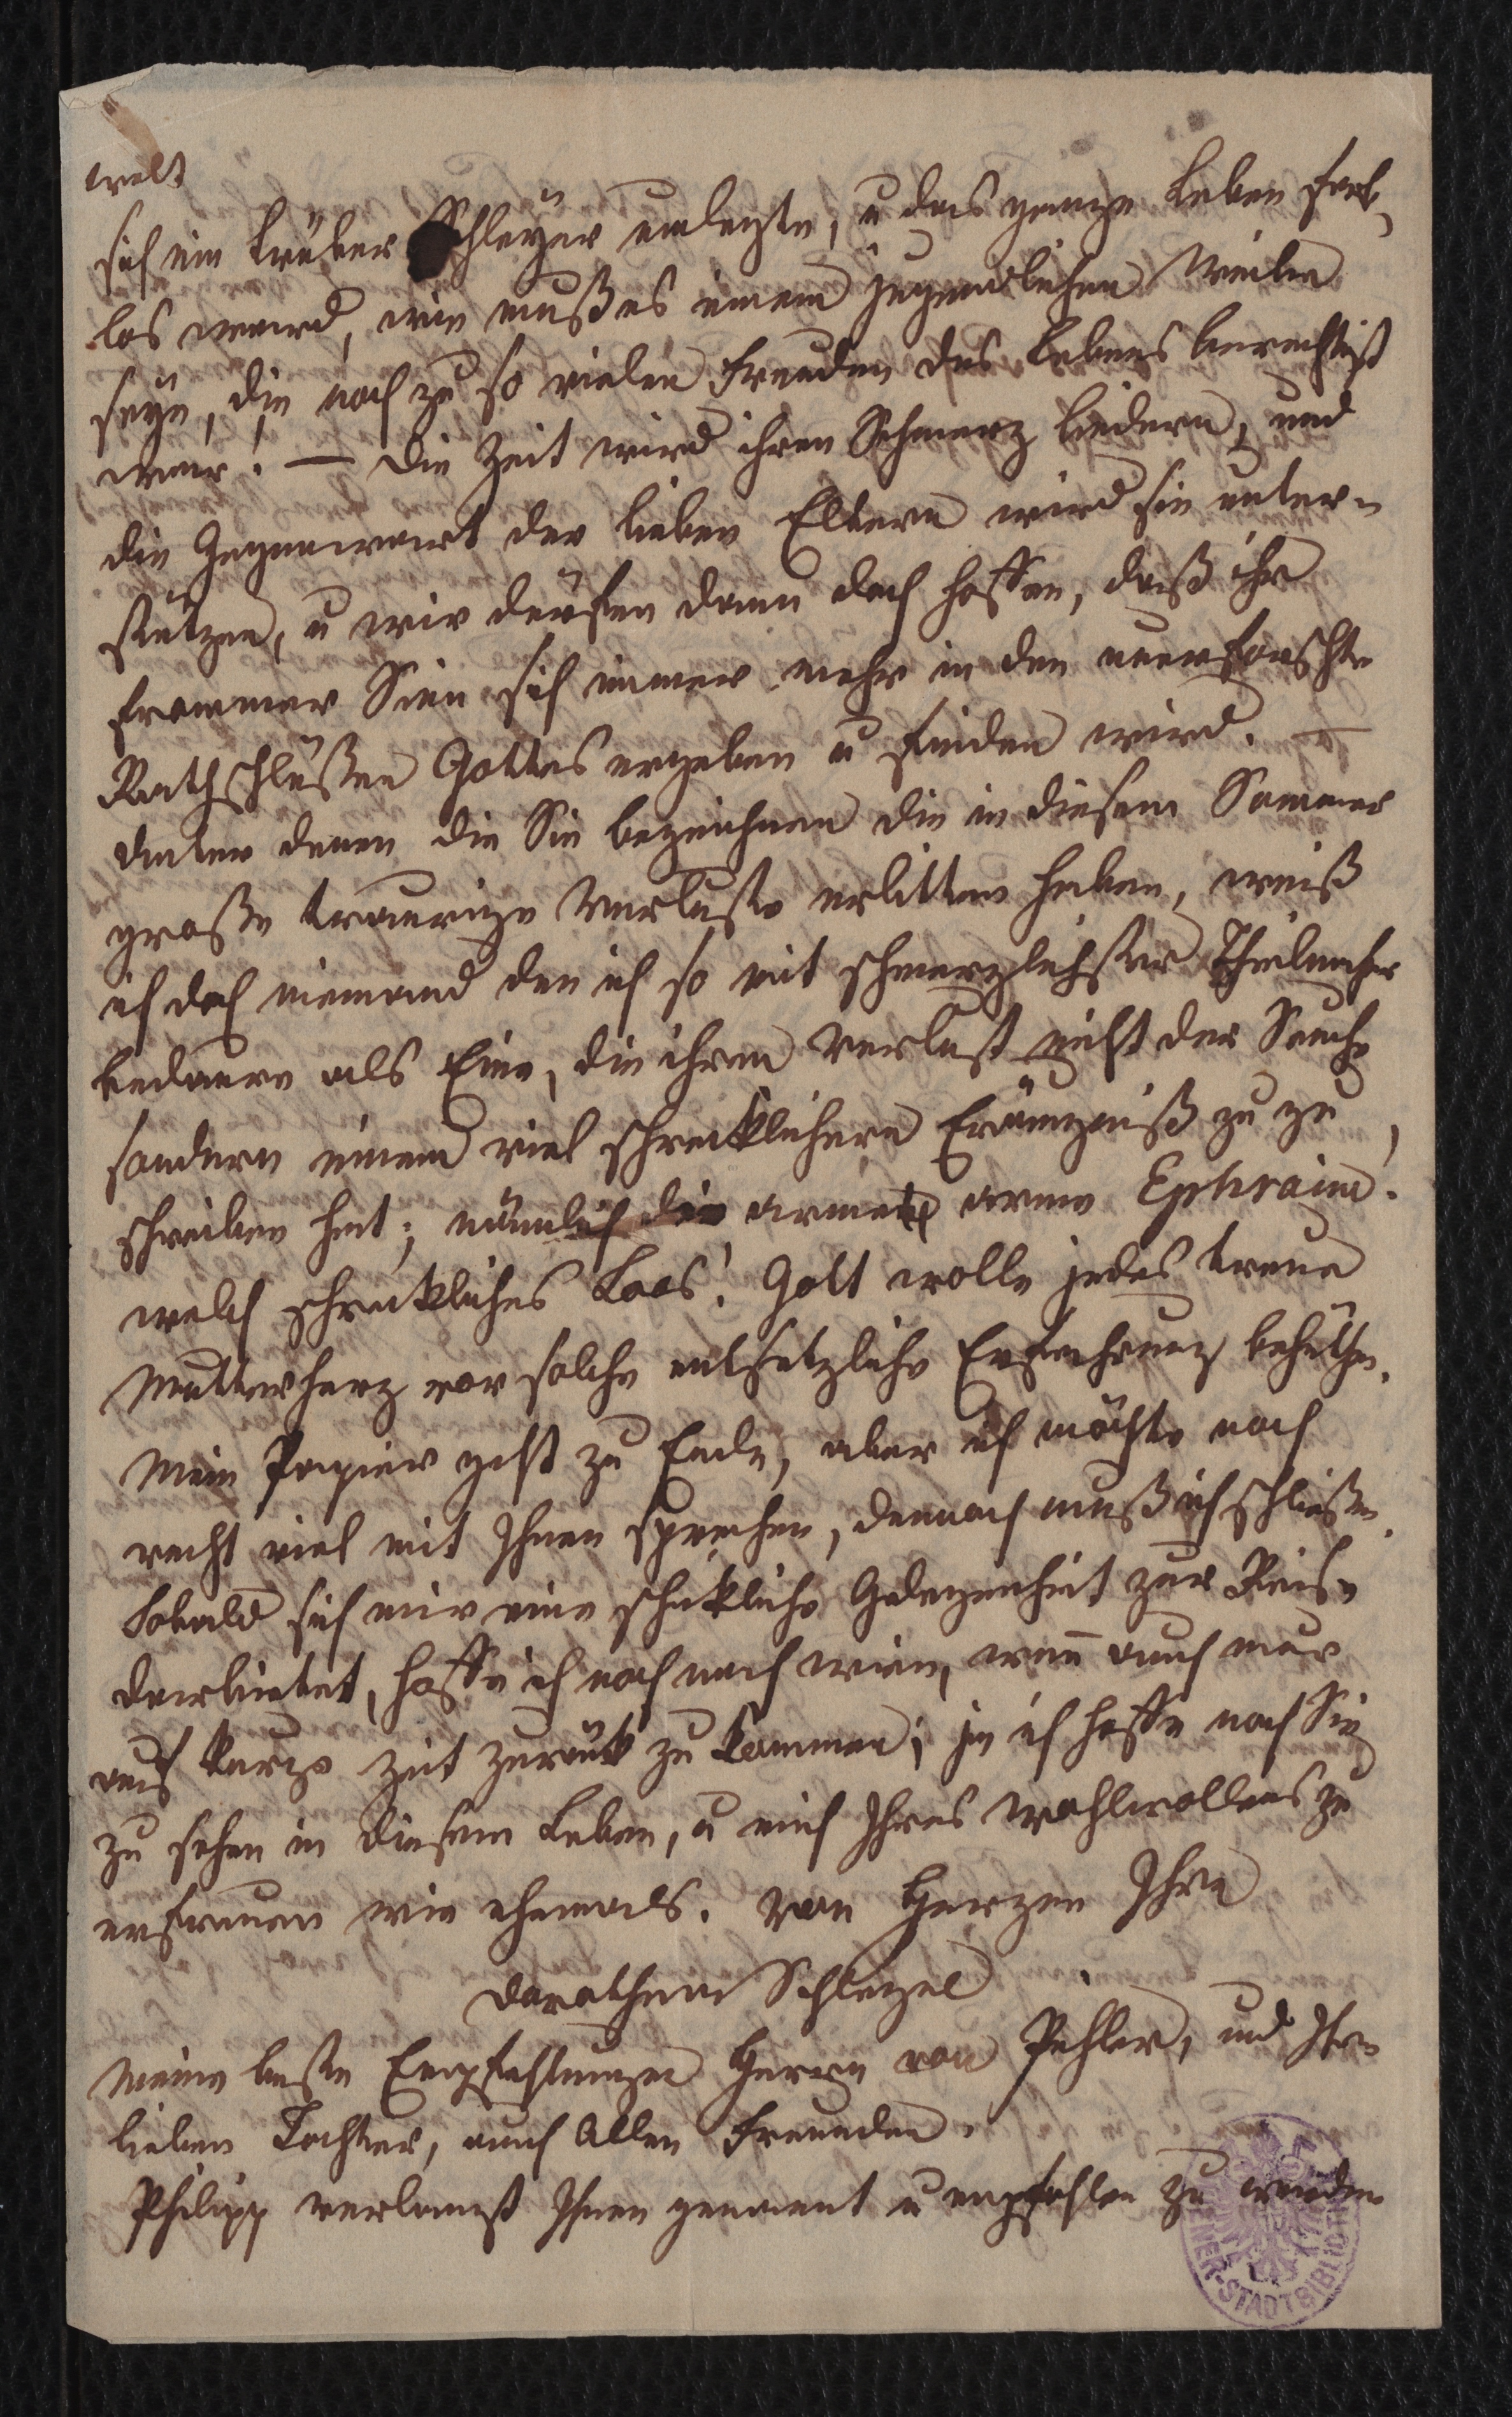 welt
sich ein trüber Schleyer umlegte, u das ganze Leben farb-
los ward, wie muß es einem jugendlichen Weibe
seyn, die noch zu so vielen Freuden des Lebens berechtigt
war! — Die Zeit wird ihren Schmerz lindern, und
die Gegenwart der lieben Eltern wird sie unter-
stützen, u wir dürfen dann doch hoffen, daß ihr
frommer Sinn sich immer mehr in den unerforschte
Rathschlüßen Gottes ergeben u finden wird. —
Unter denen die Sie bezeichnen die in diesem Sommer
große traurige Verluste erlitten haben, weiß
ich doch niemand den ich so mit schmerzlichster Theilnahme
bedaure als Eine, die ihren Verlust nicht der Seuche
sondern einem viel schrecklichern Eräugniß zu zu
schreiben hat; nämlich die arme arme Ephraim.
welch schreckliches Loos! Gott wolle jedes treue
Mutterherz vor solche entsetzliche Erfahrung behüthen.
Mein Papier geht zu Ende, aber ich möchte noch
recht viel mit Ihnen sprechen, dennoch muß ich schließen.
Sobald sich mir eine schickliche Gelegenheit zur Reise
darbietet, hoffe ich noch nach Wien, wenn auch nur
auf kurze Zeit zurück zu kommen; ja ich hoffe noch Sie
zu sehen in diesem Leben, u mich Ihres Wohlwollens zu
erfreuen wie ehemals. Von Herzen Ihre
Dorothea Schlegel
Meine beste Empfehlungen Herrn von Pichler, und Ihre
lieben Tochter, auch Allen Freunden.
Philipp verlangt Ihnen genannt u empfohlen zu werden